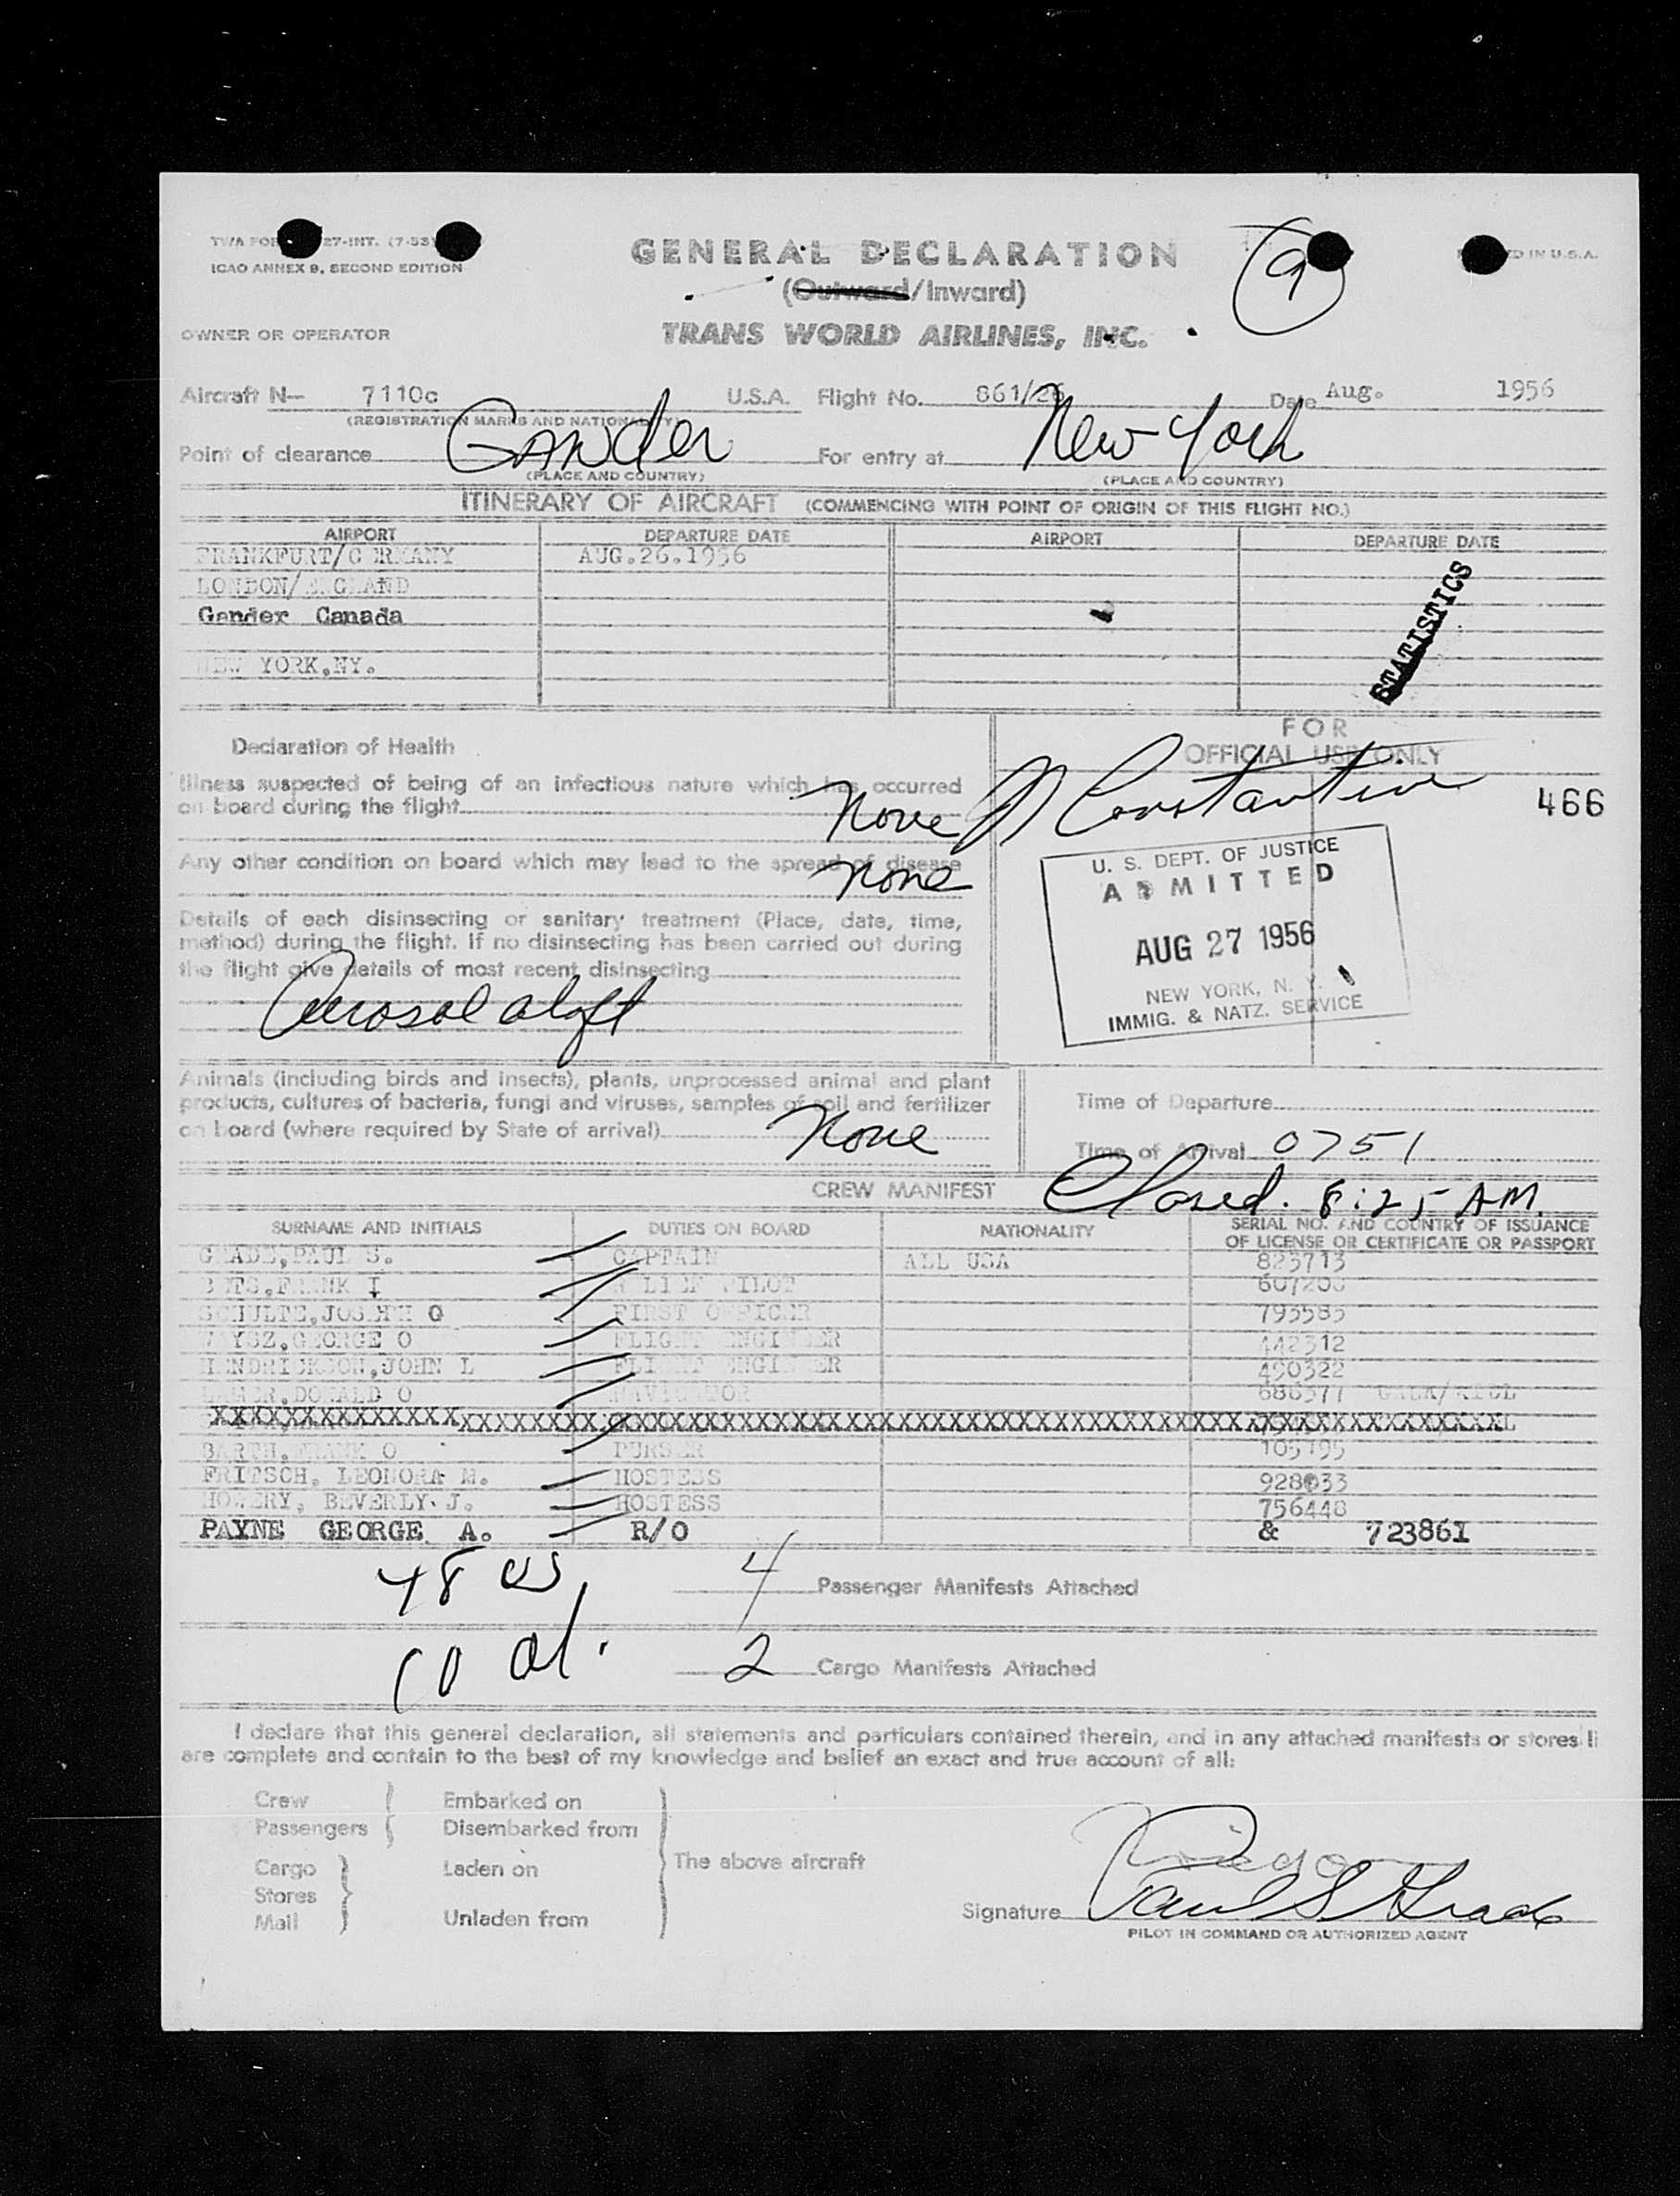 ICAO ANNEX 9, SECOND EDITION
GENERAL DECLARATION
(Outward/Inward)
9
OWNER OR OPERATOR
TRANS WORLD AIRLINES, INC.
Aircraft N— 7110c U.S.A. Flight No. 861/26 Date Aug. 1956
(REGISTRATION MARKS AND NATIONALITY)
Point of clearance Gander For entry at New York
(PLACE AND COUNTRY) (PLACE AND COUNTRY)
ITINERARY OF AIRCRAFT (COMMENCING WITH POINT OF ORIGIN OF THIS FLIGHT NO.)
AIRPORT DEPARTURE DATE AIRPORT DEPARTURE DATE
FRANKFURT/GERMANY AUG.26.1956
LONDON/ENGLAND
Gander Canada
NEW YORK,NY.
STATISTICS
FOR
OFFICIAL USE ONLY
Declaration of Health
Illness suspected of being of an infectious nature which has occurred
on board during the flight None
Constantin
466
Any other condition on board which may lead to the spread of disease
None
Details of each disinsecting or sanitary treatment (Place, date, time,
method) during the flight. If no disinsecting has been carried out during
the flight give details of most recent disinsecting
Aerosol aloft
U. S. DEPT. OF JUSTICE
ADMITTED
AUG 27 1956
NEW YORK, N. Y.
IMMIG. & NATZ. SERVICE
Animals (including birds and insects), plants, unprocessed animal and plant
products, cultures of bacteria, fungi and viruses, samples of soil and fertilizer
on board (where required by State of arrival) None
Time of Departure
Time of Arrival 0751
CREW MANIFEST Closed. 8:25 AM.
SURNAME AND INITIALS DUTIES ON BOARD NATIONALITY SERIAL NO. AND COUNTRY OF ISSUANCE
OF LICENSE OR CERTIFICATE OR PASSPORT
GRADE,PAUL S. CAPTAIN ALL USA 823713
FRANK I RELIEF PILOT
SCHULTE,JOSEPH G FIRST OFFICER 793583
GEORGE O FLIGHT ENGINEER 442312
HENDRICKSON,JOHN L FLIGHT ENGINEER 490322
DONALD O NAVIGATOR
BARTH,FRANK O PURSER
FRITSCH, LEONORA M. HOSTESS 928033
HOWERY, BEVERLY J. HOSTESS 756448
PAYNE GEORGE A. R/O & 723861
48 US
4 Passenger Manifests Attached
10 al.
2 Cargo Manifests Attached
I declare that this general declaration, all statements and particulars contained therein, and in any attached manifests or stores li
are complete and contain to the best of my knowledge and belief an exact and true account of all:
Crew Embarked on
Passengers Disembarked from
Cargo Laden on The above aircraft
Stores
Mail Unladen from
Signature Paul S Grade
PILOT IN COMMAND OR AUTHORIZED AGENT